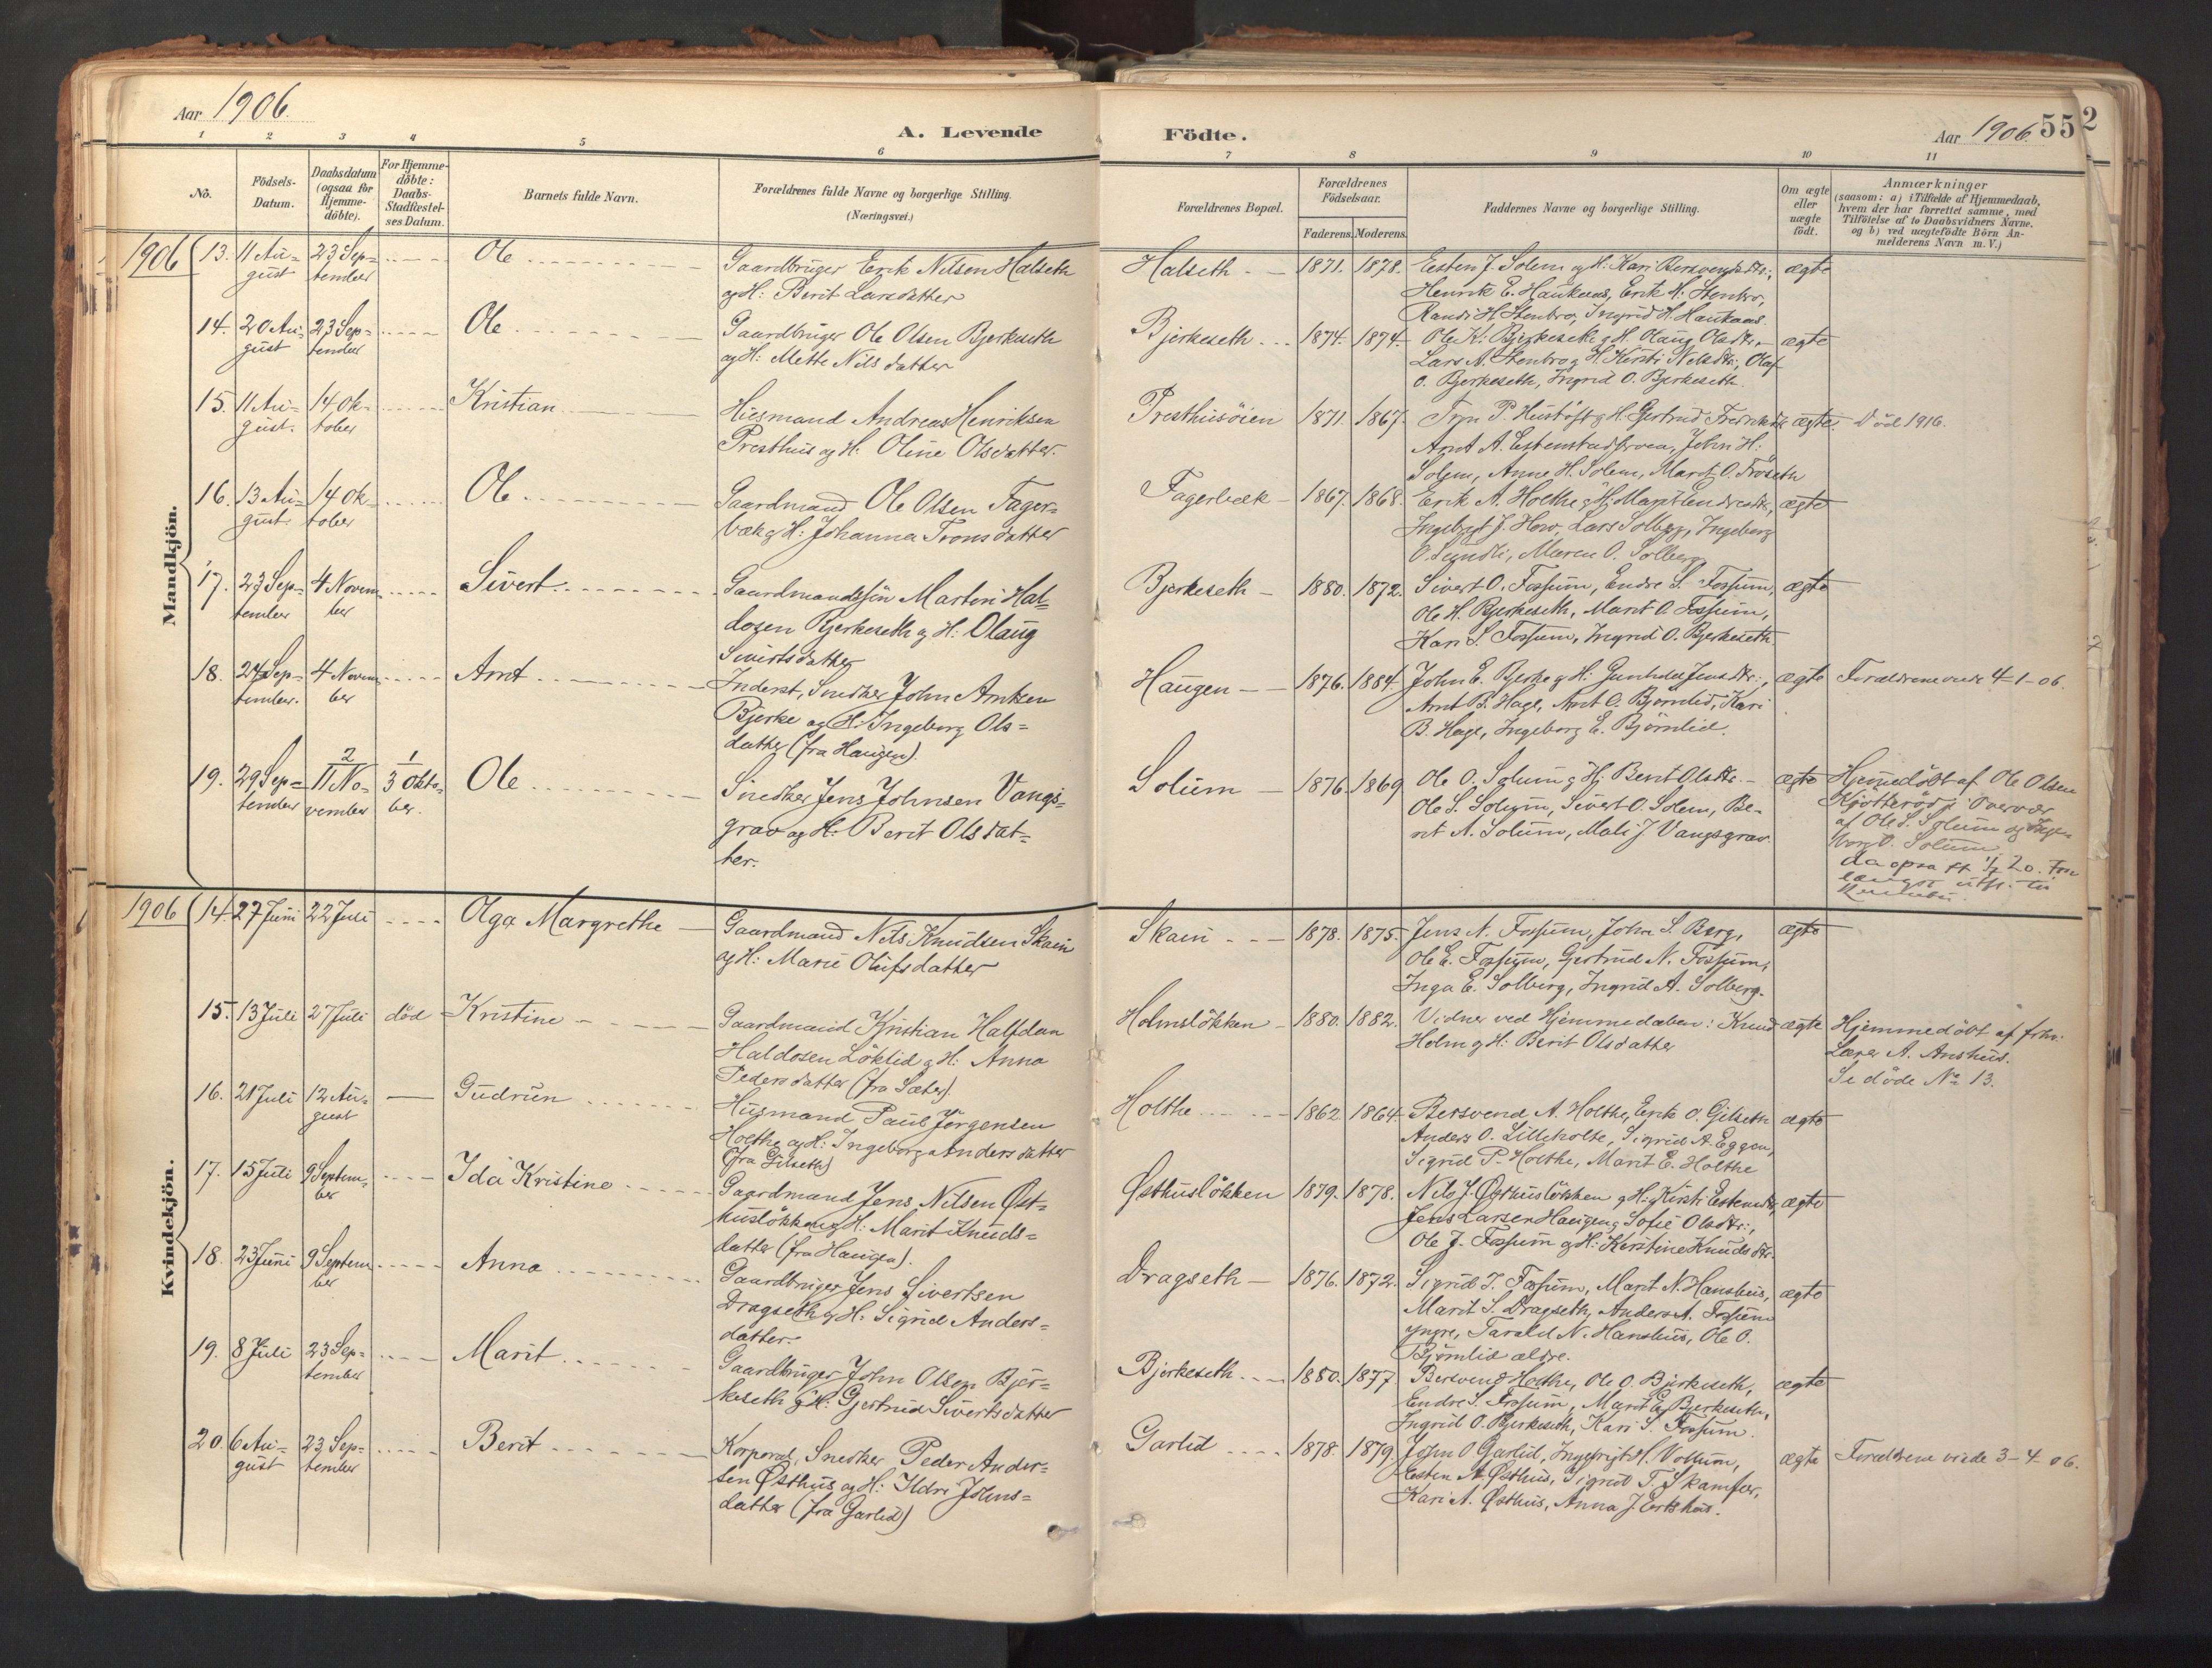 Aar 1906.
A. Levende
Födte.
Aar 1906.
55
2
1 2 3 4 5 6 7 8 9 10 11
No.
Födsels-
Datum.
Daabsdatum
(ogsaa for
Hjemme-
döbte).
For Hjemme-
döbte:
Daabs-
Stadfæstel-
ses Datum.
Barnets fulde Navn.
Forældrenes fulde Navne og borgerlige Stilling.
(Næringsvei.)
Forældrenes Bopæl.
Forældrenes
Födselsaar.
Faderens. Moderens.
Faddernes Navne og borgerlige Stilling.
Om ægte
eller
uægte
födt.
Anmærkninger
(saasom: a) i Tilfælde af Hjemmedaab,
hvem der har forrettet samme, med
Tilföielse af to Daabsvidners Navne.
og b) ved uægtefödte Börn An-
melderens Navn m. V.)
Mandkjön.
1906
13. 11 Au-
gust
23 Sep-
tember
Ole
Gaardbruger Erik Nilsen Halseth
og H: Berit Larsdatter
Halseth
1871. 1878.
Esten J. Solem og H: Kari Bersvendsdtr.,
Henrik E. Haukaas, Erik H. Stenbro,
Randi H. Stenbro, Ingrid H. Haukaas.
ægte
14. 20 Au-
gust
23 Sep-
tember
Ole
Gaardbruger Ole Olsen Bjerkeseth
og H: Mette Nilsdatter
Bjerkeseth
1874. 1874.
Ole K. Bjerkeseth og H. Olaug Olsdtr.
Lars A. Stenbro og H. Kirsti Nilsdtr., Olaf
O. Bjerkeseth, Ingrid O. Bjerkeseth.
ægte
15. 11 Au-
gust.
14 Ok-
tober
Kristian
Husmand Andreas Henriksen
Presthus og H. Oline Olsdatter.
Presthusöien
1871. 1867.
P. Hustöft og H. Gertrud
Arnt A. John H.
Solem, Anne H. Solem, Marit O. Fröseth
ægte.
Död 1916.
16. 13 Au-
gust
14 Ok-
tober
Ole
Gaardmand Ole Olsen Fager-
bæk og H: Johanna Tronsdatter
Fagerbæk
1867. 1868.
Erik A. Holthe og H: Marit Endresdtr.,
J. Lars Solberg, Ingeborg
O. Maren O. Solberg
ægte
17. 23 Sep-
tember
4 Novem-
ber
Sivert
Gaardmandssön Martin Hal-
dosen Bjerkeseth og H: Olaug
Sivertsdatter
Bjerkeseth
1880. 1872.
Sivert O. Fossum, Endre S. Fossum,
Ole H. Bjerkeseth, Marit O. Fossum,
Kari S. Fossum, Ingrid O. Bjerkeseth
ægte
18. 24 Sep-
tember.
4 Novem-
ber
Arnt
Inderst, Snedker John Arntsen
Bjerke og H. Ingeborg Ols-
datter (fra Haugen).
Haugen
1876. 1884.
John E. Bjerke og H: Gunhild Jensdtr.,
Arnt B. Hage, Arnt O. Björnlid, Kari
B. Hage, Ingeborg E. Björnlid.
ægte
Forældrene viede 4-1-06.
19. 29 Sep-
tember
2
11 No-
vember
1
3 Okto-
ber.
Ole
Snedker Jens Johnsen Vangs-
grav og H: Berit Olsdat-
ter.
Solum
1876. 1869
Ole O. Solum og H: Berit Olsdtr.
Ole S. Solum, Sivert O. Solem, Be-
rit A. Solum, Mali J. Vangsgrav.
ægte
Hjemmedöbt af Ole Olsen
i Overvær
af Ole S. Solum og Inge-
borg O. Solum
Kvindekjön.
1906
14. 27 Juni
22 Juli
Olga Margrethe
Gaardmand Nils Knudsen Skain
og H: Marie Olufsdatter
Skain
1878. 1875.
Jens N. Fossum, John S. Berg,
Ole E. Fossum, Gjertrud N. Fossum,
Inga E. Solberg, Ingrid A. Solberg.
ægte
15. 13 Juli
27 Juli
död
Kristine
Gaardmand Kristian Halfdan
Haldosen Löklid og H: Anna
Pedersdatter (fra Sæter).
Holmslökken
1880. 1882.
Vidner ved Hjemmedaaben: Knud
Holm og H: Berit Olsdatter
ægte
Hjemmedöbt af frhv.
Lærer A. Anshus.
Se döde No 13.
16. 21 Juli
12 Au-
gust
Gudrun
Husmand Paul Jörgensen
Holthe og H: Ingeborg Andersdatter
(fra Gilseth)
Holthe
1862. 1864.
Bersvend A. Holthe, Erik O. Gilseth
Anders O. Lilleholte, Sigrid A. Eggen,
Sigrid P. Holthe, Marit E. Holthe
ægte
17. 15 Juli
9 Septem-
ber
Ida Kristine
Gaardmand Jens Nilsen Øst-
huslökken og H: Marit Knuds-
datter (fra Haugen).
Østhuslökken
1879. 1878.
Nils J. Østhuslökken og H: Kirsti Estensdtr.,
Jens Larsen Haugen, Sofie Olsdtr.,
Ole J. Fossum og H: Kirstine Knudsdtr.
ægte
18. 23 Juni
9 Septem-
ber
Anna
Gaardbruger Jens Sivertsen
Dragseth og H. Sigrid Anders-
datter.
Dragseth
1876. 1872.
Sigrid T. Fossum, Marit N. Hanshus,
Marit S. Dragseth, Anders A. Fossum
yngre, Tarald N. Hanshus, Ole O.
Björnlid ældre.
ægte
19. 8 Juli
23 Sep-
tember
Marit
Gaardbruger John Olsen Bjer-
keseth og H: Gjertrud Sivertsdatter
Bjerkeseth
1880. 1877
Bersvend Holthe, Ole O. Bjerkeseth,
Endre S. Fossum, Marit O. Bjerkeseth,
Ingrid O. Bjerkeseth, Kari S. Fossum.
ægte
20. 6 Au-
gust
23 Sep-
tember
Berit
Korporal, Snedker Peder Ander-
sen Østhus og H: Ildri Johns-
datter (fra Garlid)
Garlid
1878. 1879.
John O Garlid, Ingebrigt H. Vollum,
Esten A. Østhus, Sigrid T. Skamfer,
Kari A. Østhus, Anna J. Ertshus.
ægte
Forældrene viede 3-4-06.